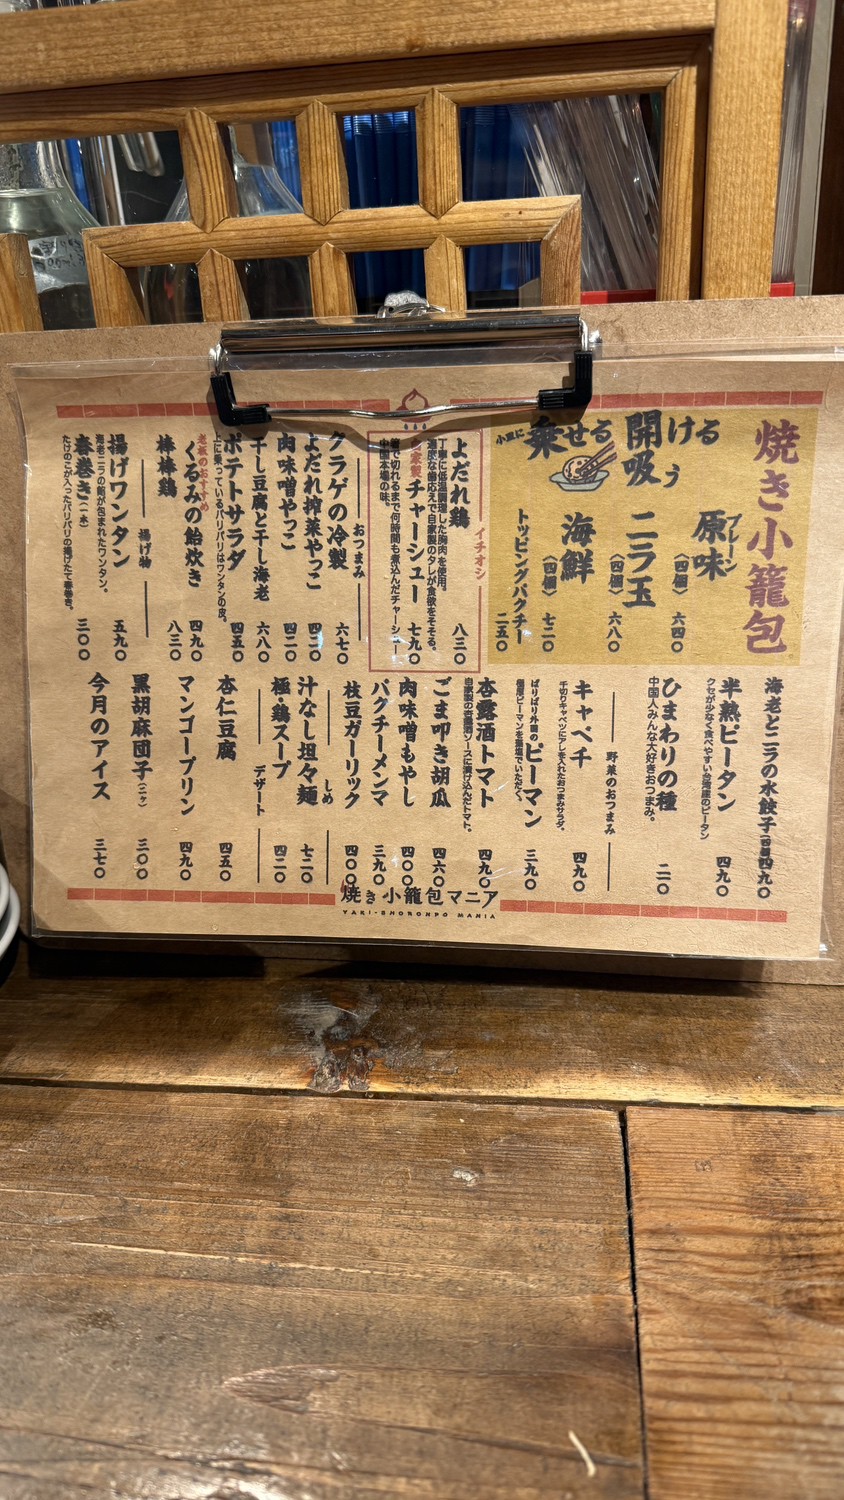 焼き小籠包
開ける
吸う
小皿に乗せる
原味 プレーン
(四個) 六四〇
ニラ玉
(四個) 六八〇
海鮮
(四個) 七二〇
トッピングパクチー 二五〇
イチオシ
よだれ鶏 八三〇
丁寧に低温調理した胸肉を使用。
適度な歯応えで自家製のタレが食欲をそそる。
自家製チャーシュー 七九〇
箸で切れるまで何時間も煮込んだチャーシュー
中国本場の味。
おつまみ
クラゲの冷製 六七〇
よだれ搾菜やっこ 四二〇
肉味噌やっこ 四二〇
干し豆腐と干し海老 六八〇
ポテトサラダ 四五〇
上に乗っているパリパリはワンタンの皮。
老板のおすすめ
くるみの飴炊き 四九〇
棒棒鶏 八三〇
揚げ物
揚げワンタン 五九〇
海老ニラの餡が包まれたワンタン。
春巻き(一本) 三〇〇
たけのこが入ったパリパリの揚げたて春巻き。
海老とニラの水餃子(四個) 四九〇
半熟ピータン 四九〇
クセが少なく食べやすい台湾産のピータン
ひまわりの種 二一〇
中国人みんな大好きおつまみ。
野菜のおつまみ
キャベチ 四九〇
千切りキャベツにアレを入れたおつまみサラダ。
ぱりぱり外国のピーマン 三九〇
杏露酒トマト 四九〇
自家製の杏露酒ソースに漬け込んだトマト。
ごま叩き胡瓜 四六〇
肉味噌もやし 四〇〇
パクチーメンマ 三九〇
枝豆ガーリック 四〇〇
しめ
汁なし坦々麺 七二〇
極・鶏スープ 四二〇
デザート
杏仁豆腐 四五〇
マンゴープリン 四九〇
黒胡麻団子(二ヶ) 三〇〇
今月のアイス 三七〇
焼き小籠包マニア
YAKI-SHORONPO MANIA